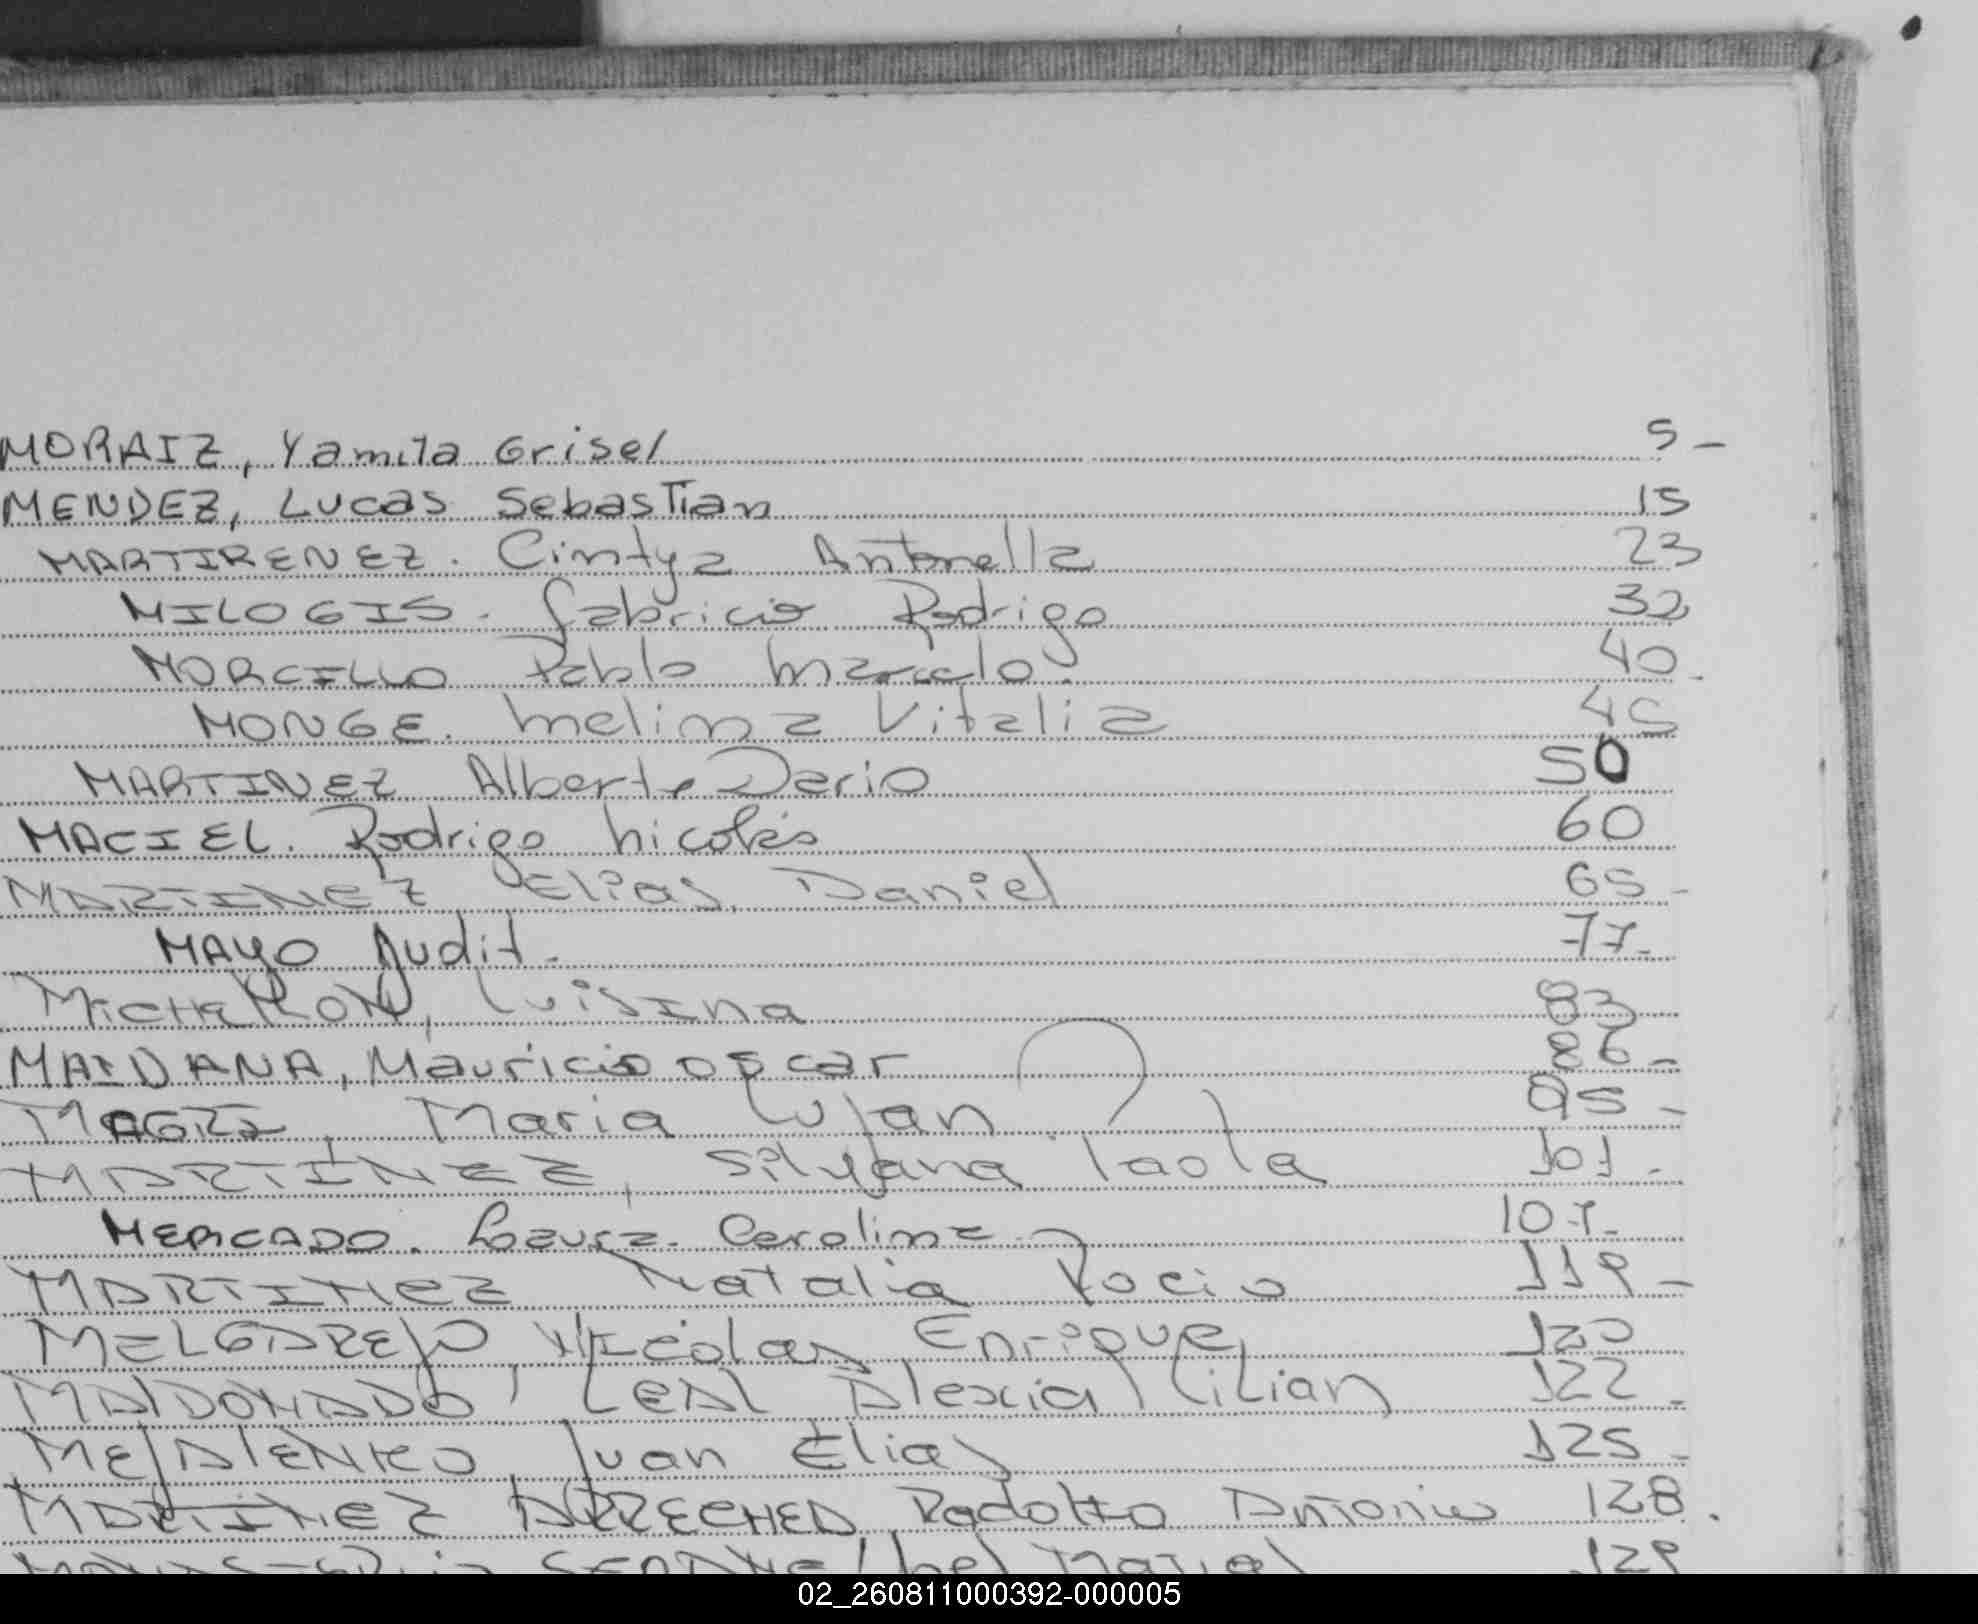 MORAIZ, Yamila Grisel 5 -
MENDEZ, Lucas Sebastian 15
MARTIRENEZ. Cintya Antonella 23
MILOGIS. Fabricio Rodrigo 32
MORCILLO Pablo Marcelo. 40.
MONGE. Melina Vitalia 45
MARTINEZ Alberto Dario 50
MACIEL. Rodrigo Nicolás 60
MARTINEZ Elias Daniel 65 -
MAYO Judit. 77.
MICHELLOM, Luisina 83
MAIDANA, Mauricio Oscar 86 -
MAGRI, Maria Lujan 95 -
MARTINEZ, Silvana Paola 101.
MERCADO. Laura. Carolina. 107.
MARTINEZ Natalia Rocio 119 -
MELGAREJO, Nicolas Enrique 120
MALDONADO, LEAL Alexia Lilian 122.
Juan Elias 125 -
MARTINEZ Rodolfo Antonio 128.
129
02_260811000392-000005